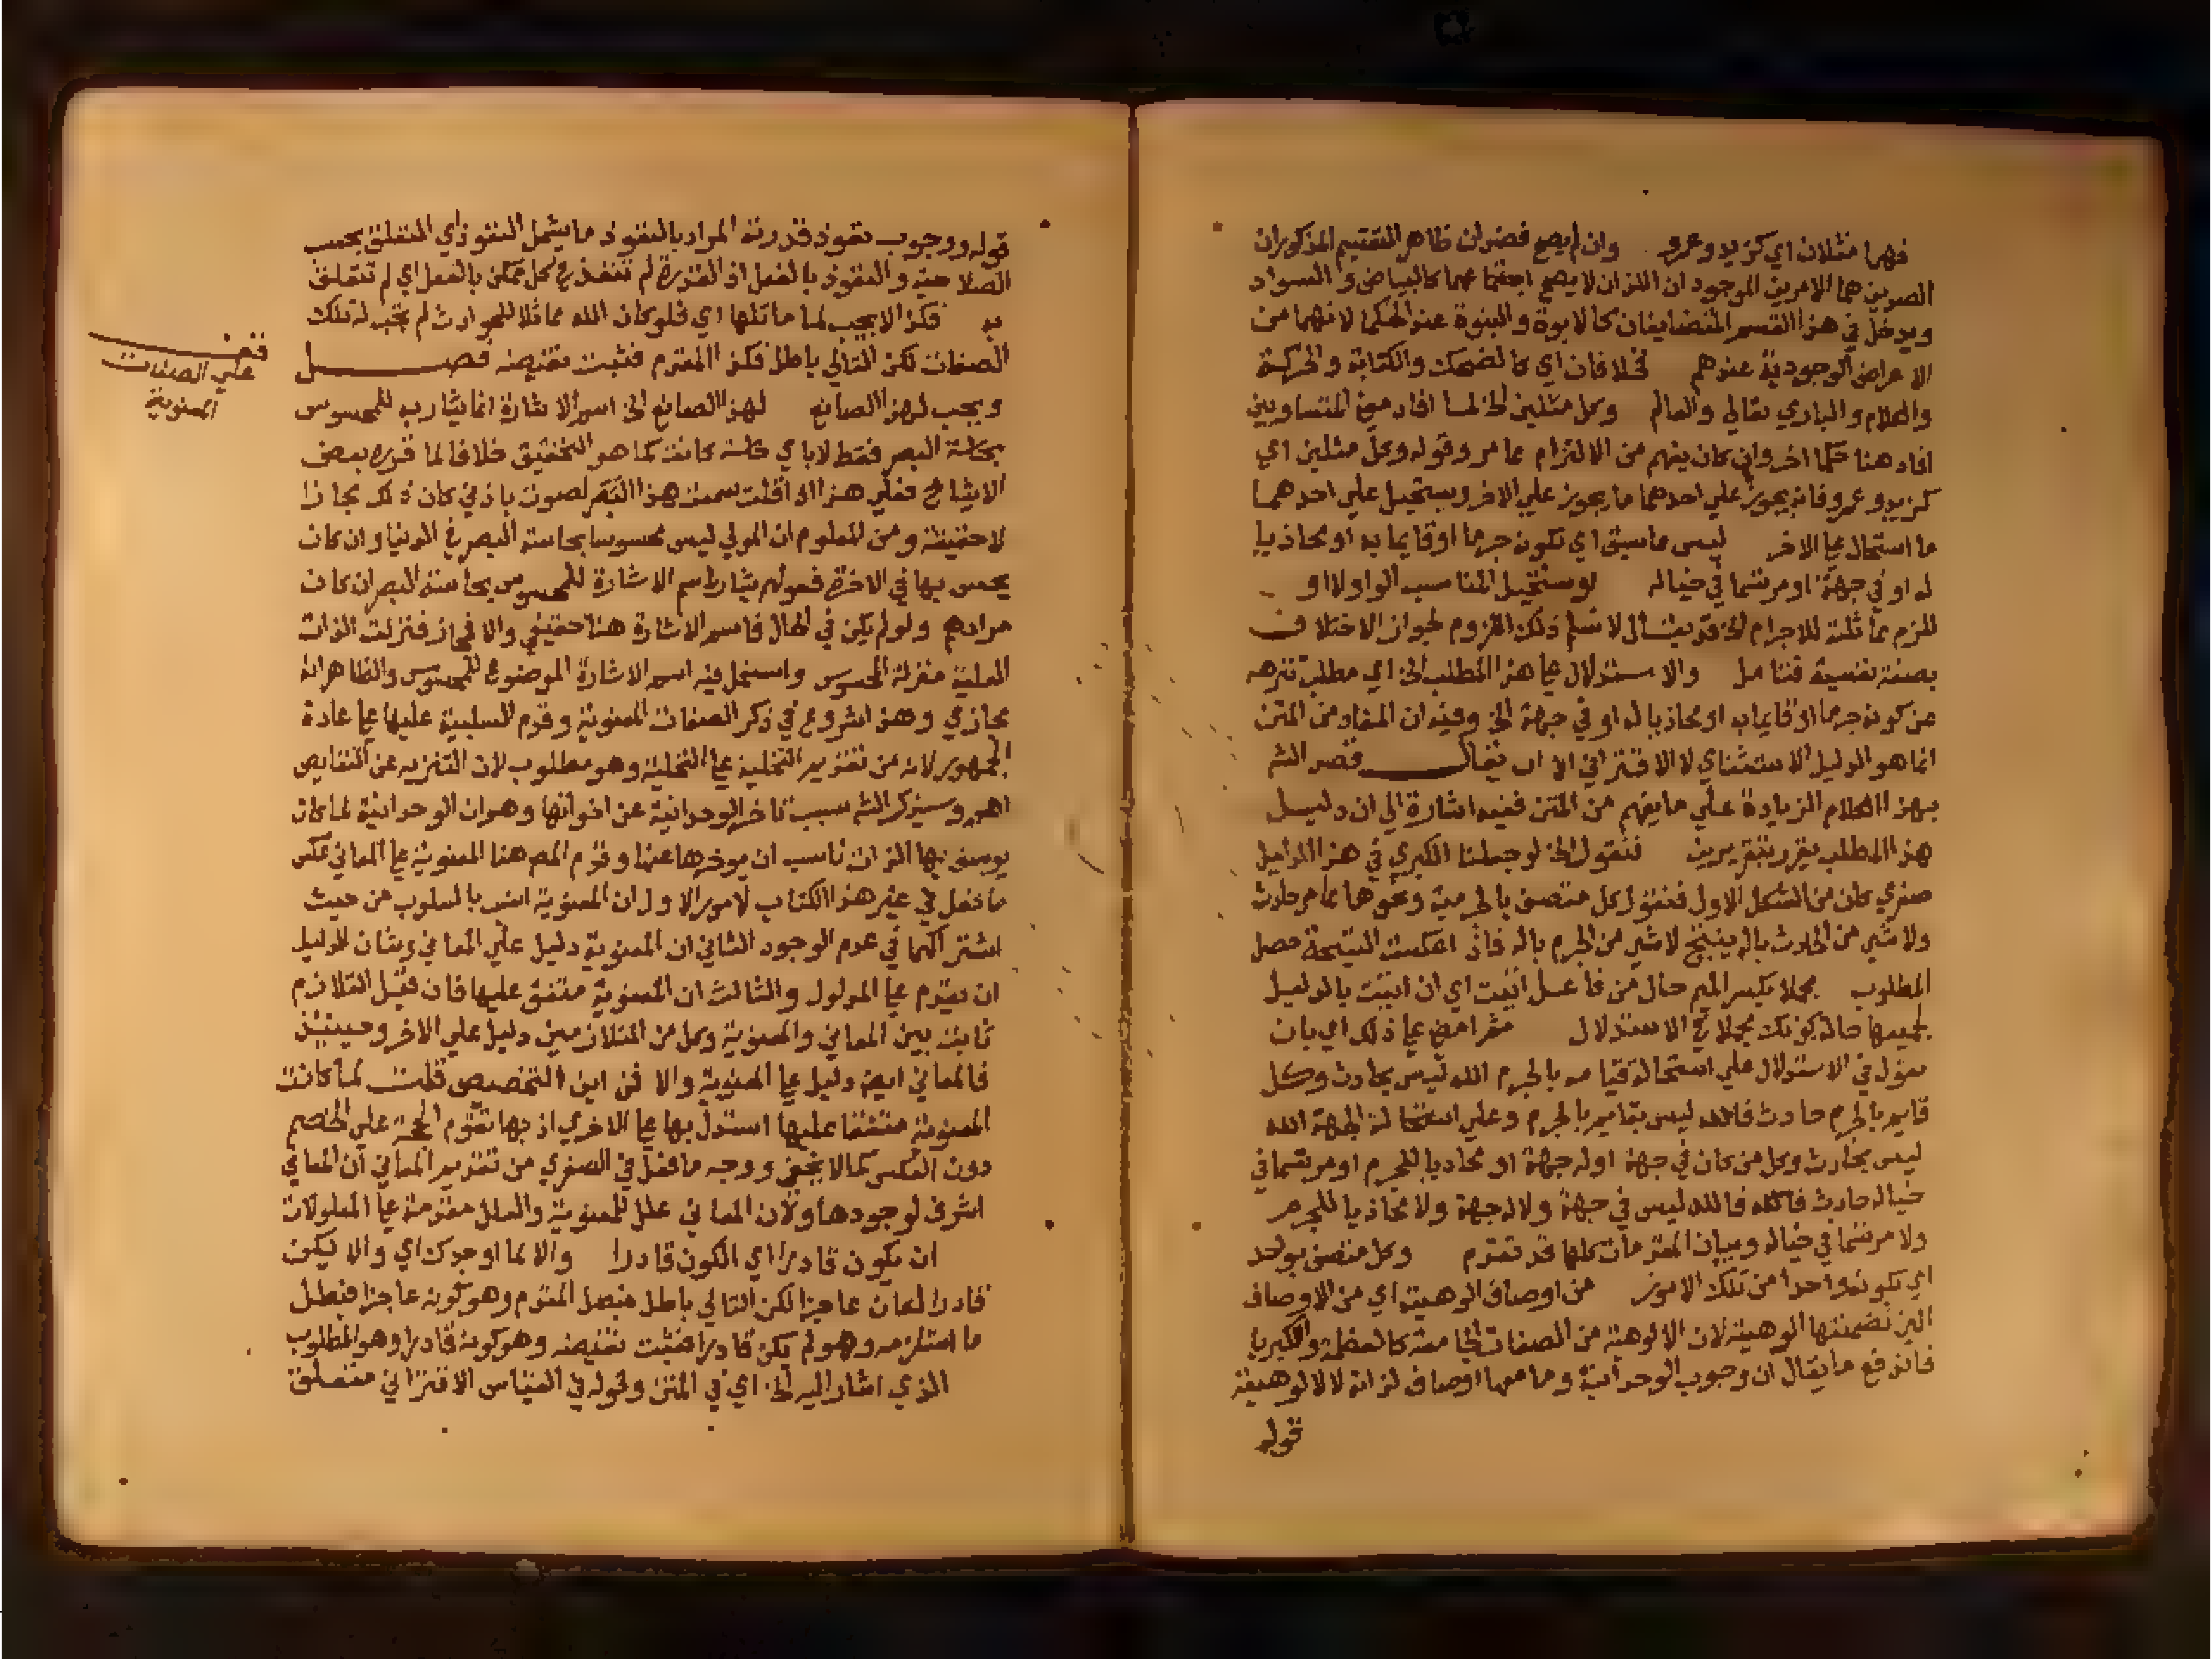 فهما مثلان اي كزيد وعمرو وان لم يصح فضدان ظاهر التقسيم المذكور ان
الضدين هما الامرين الموجودان اللذان لا يصح اجتماعهما كالبياض والسواد
ويدخل في هذا القسم المتضايفان كالابوة والبنوة عند الحكما لانهما من
الاعراض الوجودية عندهم فخلافان اي كالضحك والكتابة والحركة
والكلام والباري تعالى والعالم وكل مثلين الخ لما افاد معنى المتساويين
افاد هنا حكما اخر وان كان يفهم من الالتزام مما مر وقوله وكل مثلين اي
كزيد وعمرو فانه يجوز علي احدهما ما يجوز علي الاخر ويستحيل علي احدهما
ما استحال علي الاخر ليس ما سبق اي تكونه جرما او قايما به او محاذيا
له او في جهة او مرتسما في خياله لو ستحيل المناسب الواو لا او
للزم مماثلته للاجرام الخ قد يقال لا نسلم ذلك اللزوم لجواز الاختلاف
بصفة نفسية فتامل والاستدلال علي هذا المطلب الخ اي مطلب تنزهه
عن كونه جرما او قايما به او محاذيا له او في جهة الخ وفيه ان المفاد من المتن
انما هو الدليل الاستثناي لا الاقتراني الا ان يقال قصد الشم
بهذا الكلام الزيادة علي ما يفهم من المتن ففيه اشارة الي ان دليل
هذا المطلب يقرر بتقريرين فنقول الخ لو جعلنا الكبري في هذا الدليل
صغري كان من الشكل الاول فنقول كل متصف بالجرمية ونحوها مما مر حادث
ولا شي من الحادث باله ينتج لا شي من الجرم باله فاذا عكست النتيجة حصل
المطلوب مجملا بكسر الميم حال من فاعل اتيت اي ان اتيت بالدليل
لجميعها حالة كونك مجملا في الاستدلال ثم امض علي ذلك اي بان
تقول في الاستدلال علي استحالة قيامه بالجرم الله ليس بحادث وكل
قايم بالجرم حادث فالله ليس بقايم بالجرم وعلي استحالة الجهة الله
ليس بحادث وكل من كان في جهة او له جهة او محاذيا للجرم او مرتسما في
خياله حادث فالله فالله ليس في جهة ولا له جهة ولا محاذيا للجرم
ولا مرتسما في خياله وبيان المقدمات كلها قد تقدم وكل متصف بواحد
اي بكونه واحدا من تلك الامور من اوصاف الوهيته اي من الاوصاف
التي تضمنتها الوهيته لان الالوهية من الصفات الجامعة كالعظمة والكبريا
فاندفع ما يقال ان وجوب الوحدانية وما معها اوصاف لذاته لا لالوهيته
قوله
قوله ووجوب نفوذ قدرته المراد بالنفوذ ما يشمل النفوذ اي التعلق بحسب
الصلاحية والنفوذ بالفعل اذ القدرة لم تنفذ في كل ممكن بالفعل اي لم تتعلق
به فكذا لا يجب لما ماثلها اي فلو كان الله مماثلا للحوادث لم تجب له تلك
الصفات لكن التالي باطل فكذا المقدم فثبت نقيضه فصل
ويجب لهذا الصانع لهذا الصانع الخ اسم الاشارة انما يشار به للمحسوس
بحاسة البصر فقط لا باي حاسة كانت كما هو التحقيق خلافا لما قرره بعض
الاشياخ فعلي هذا اذا قلت سمعت هذا لصوت باذني كان ذلك مجازا
لا حقيقة ومن المعلوم ان المولي ليس محسوسا بحاسة البصر في الدنيا وان كان
يحس بها في الاخرة فقولهم يشار باسم الاشارة للمحسوس بحاسة البصر ان كان
مرادهم ولو لم يكن في الحال فاسم الاشارة هنا حقيقي والا فمجاز فنزلت الذات
العلية منزلة المحسوس واستعمل فيه اسم الاشارة الموضوع للمحسوس والظاهر انه
مجازي وهذا شروع في ذكر الصفات المعنوية وقدم السلبية عليها علي عادة
الجمهور لانه من تقديم التخلية علي التحلية وهو مطلوب لان التنزيه عن النقايص
اهم وسيذكر الشم سبب تاخر الوحدانية عن اخواتها وهو ان الوحدانية لما كان
يوصف بها الذات ناسب ان يوخرها عنها وقدم المصم هنا المعنوية علي المعاني عكس
ما فعل في غير هذا الكتاب لامور الاول ان المعنوية انسب بالسلوب من حيث
اشتراكهما في عدم الوجود الثاني ان المعنوية دليل علي المعاني وشان الدليل
ان يقدم علي المدلول والثالث ان المعنوية متفق عليها فان قيل التلازم
ثابت بين المعاني والمعنوية وكل من المتلازمين دليل علي الاخر وحينيذ
فالمعاني ايضا دليل علي المعنوية والا فمن اين التخصيص قلت لما كانت
المعنوية متفقا عليها استدل بها علي الاخري اذ بها تقوم الحجة علي الخصم
دون العكس كما لا يخفي ووجه ما فعل في الصغري من تقديم المعاني ان المعاني
اشرف لوجودها ولان المعاني علل للمعنوية والعلل مقدمة علي المعلولات
ان يكون قادرا اي الكون قادرا والا لما اوجدك اي والا يكن
قادرا لكان عاجزا لكن التالي باطل فبطل المقدم وهو كونه عاجزا فبطل
ما استلزمه وهو لم يكن قادرا فثبت نقيضه وهو كونه قادرا وهو المطلوب
الذي اشار اليه الخ اي في المتن وقوله في القياس الاقتراني متعلق
علي الصفات
المعنوية